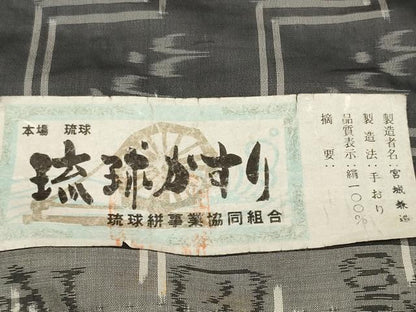 本場 琉球
琉球がすり
琉球絣事業協同組合
製造者名:宮城
製造法:手おり
品質表示:絹一〇〇%
摘要: